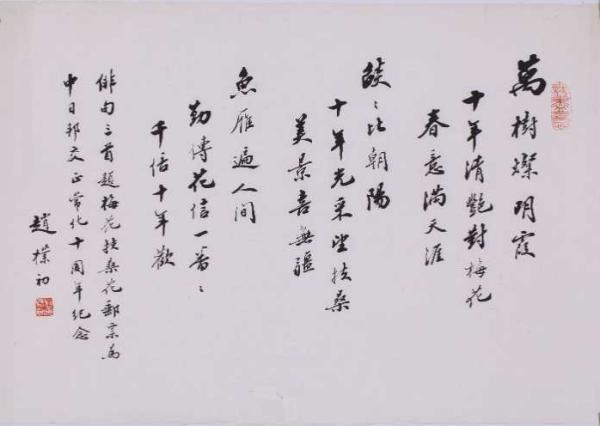 萬樹燦明霞
十年清艷對梅花
春意滿天涯
燄〻比朝陽
十年光采望扶桑
美景喜無疆
魚雁遍人间
勤傳花信一番〻
千倍十年歡
俳句三首題梅花扶桑花郵票為
中日邦交正常化十周年紀念
趙樸初